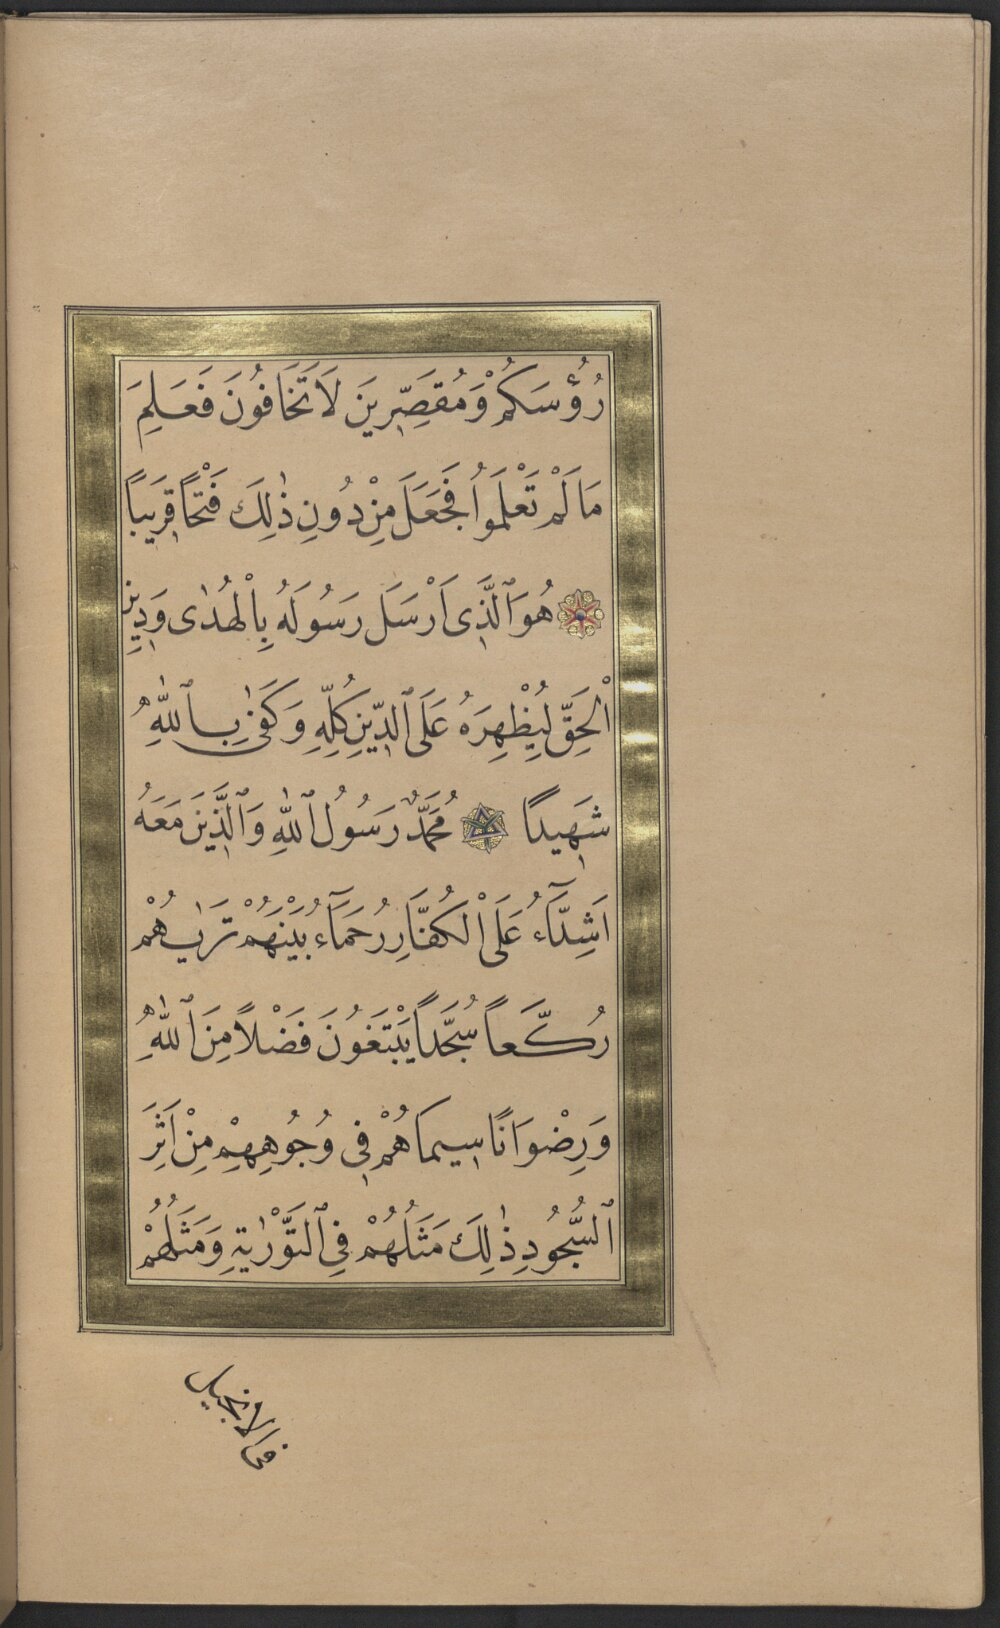 رُؤُسَكُمْ وَمُقَصِّرِينَ لَا تَخَافُونَ فَعَلِمَ
مَا لَمْ تَعْلَمُوا فَجَعَلَ مِنْ دُونِ ذٰلِكَ فَتْحًا قَرِيبًا
هُوَ ٱلَّذِى اَرْسَلَ رَسُولَهُ بِالْهُدٰى وَدِينِ
الْحَقِّ لِيُظْهِرَهُ عَلَى ٱلدِّينِ كُلِّهِ وَكَفٰى بِٱللّٰهِ
شَهِيدًا مُحَمَّدٌ رَسُولُ ٱللّٰهِ وَٱلَّذِينَ مَعَهُ
اَشِدَّآءُ عَلَى الْكُفَّارِ رُحَمَآءُ بَيْنَهُمْ تَرٰيهُمْ
رُكَّعاً سُجَّداً يَبْتَغُونَ فَضْلًا مِنَ ٱللّٰهِ
وَرِضْوَانًا سِيمَاهُمْ فِى وُجُوهِهِمْ مِنْ اَثَرِ
ٱلسُّجُودِ ذٰلِكَ مَثَلُهُمْ فِى ٱلتَّوْرٰيةِ وَمَثَلُهُمْ
فى الانجيل